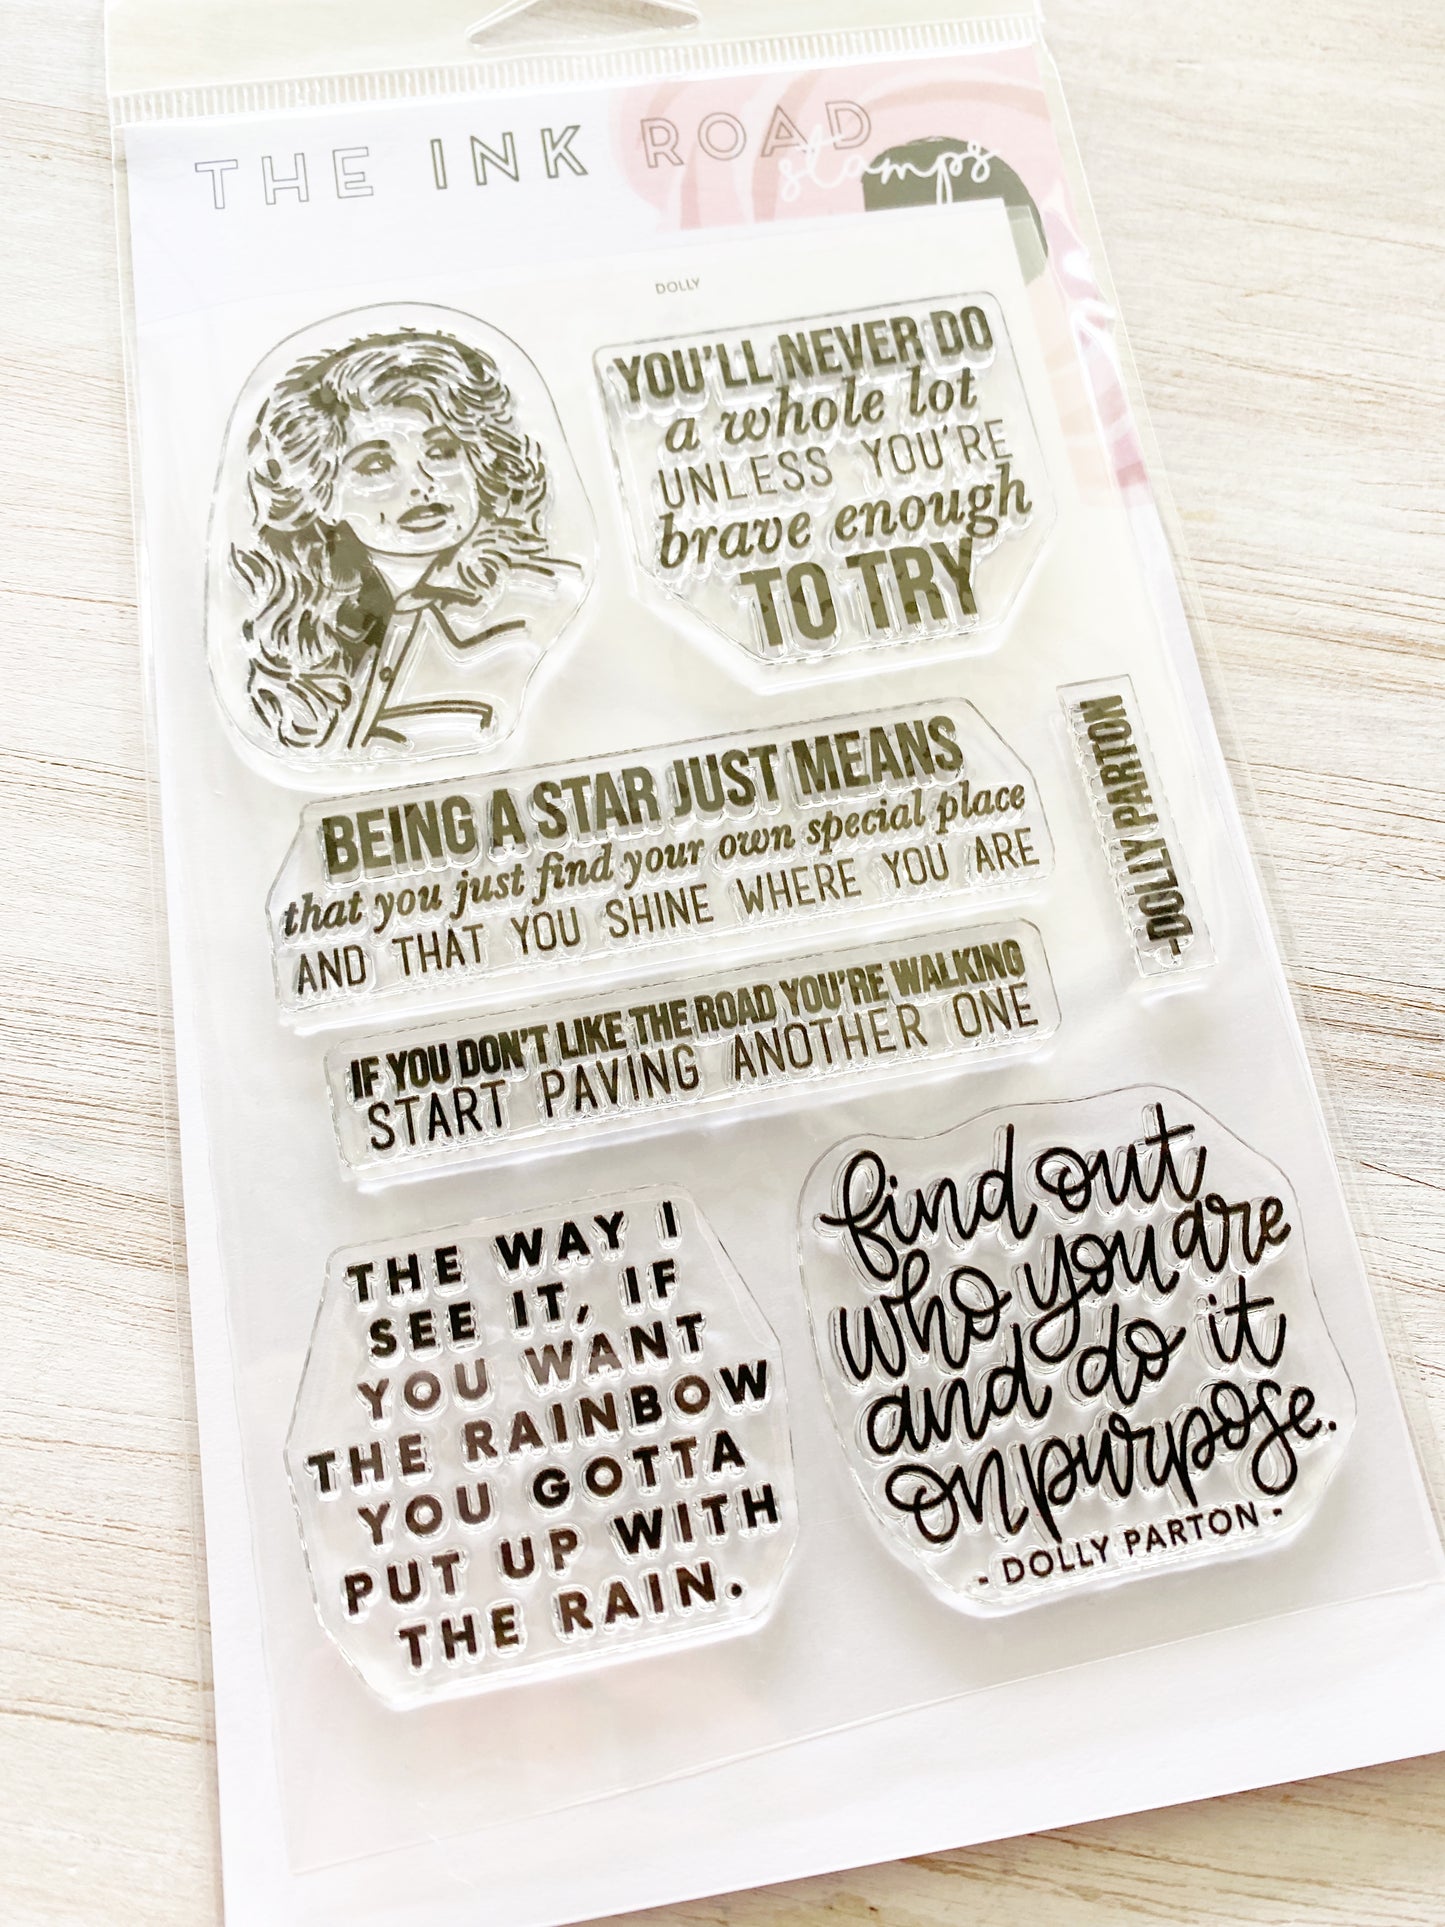 THE INK ROAD
stamps
DOLLY
YOU'LL NEVER DO
a whole lot
UNLESS YOU'RE
brave enough
TO TRY
BEING A STAR JUST MEANS
that you just find your own special place
AND THAT YOU SHINE WHERE YOU ARE
-DOLLY PARTON
IF YOU DON'T LIKE THE ROAD YOU'RE WALKING
START PAVING ANOTHER ONE
THE WAY I
SEE IT, IF
YOU WANT
THE RAINBOW
YOU GOTTA
PUT UP WITH
THE RAIN.
find out
who you are
and do it
on purpose.
- DOLLY PARTON -